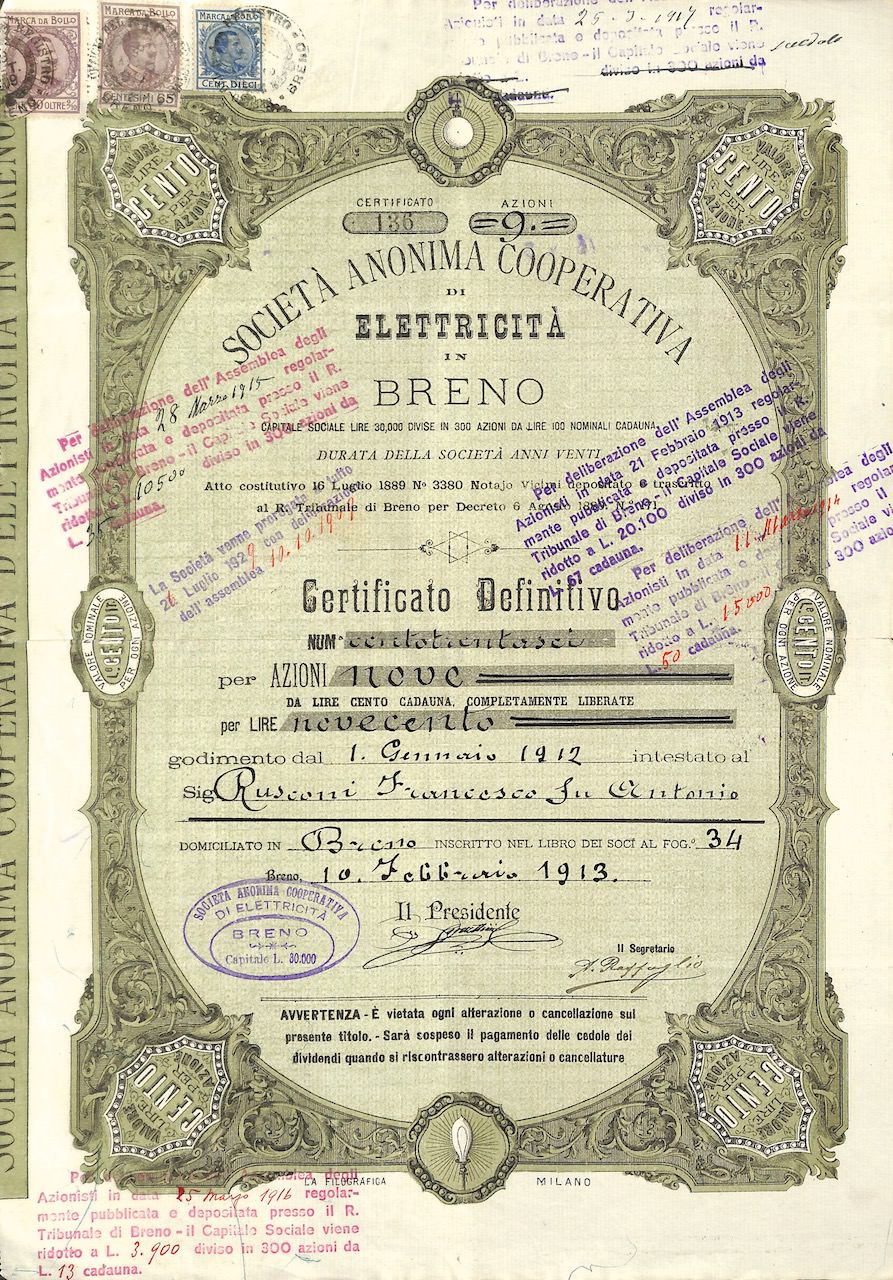 MARCA DA BOLLO
MARCA DA BOLLO
CENTESIMI 65
MARCA DA BOLLO
CENT. DIECI
Per deliberazione dell'Assemblea degli
Azionisti in data 25-3-1917 regolar-
mente pubblicata e depositata presso il R.
Tribunale di Breno - il Capitale Sociale viene
diviso in 300 azioni da
cadauna.
SOCIETÀ ANONIMA COOPERATIVA D'ELETTRICITÀ IN BRENO
VALORE
LIRE
CENTO
PER
AZIONE
VALORE
LIRE
CENTO
PER
AZIONE
CERTIFICATO AZIONI
136 =9.=
SOCIETÀ ANONIMA COOPERATIVA
DI
ELETTRICITÀ
IN
BRENO
CAPITALE SOCIALE LIRE 30,000 DIVISE IN 300 AZIONI DA LIRE 100 NOMINALI CADAUNA
DURATA DELLA SOCIETÀ ANNI VENTI
Atto costitutivo 16 Luglio 1889 Nº 3380 Notajo Vielmi depositato e trascritto
al R. Tribunale di Breno per Decreto 6 Agosto 1889. N.º 171.
Per deliberazione dell'Assemblea degli
Azionisti in data 28 Marzo 1915 regolar-
mente pubblicata e depositata presso il R.
Tribunale di Breno - il Capitale Sociale viene
ridotto a L. 10500 diviso in 300 azioni da
L. 35 cadauna.
Per deliberazione dell'Assemblea degli
Azionisti in data 21 Febbraio 1913 regolar-
mente pubblicata e depositata presso il R.
Tribunale di Breno - il Capitale Sociale viene
ridotto a L. 20.100 diviso in 300 azioni da
L. 67 cadauna.
La Società venne prorogata a tutto
Luglio 1929 con deliberazione
dell'assemblea 10.10.1909
Per deliberazione dell'Assemblea degli
Azionisti in data 11 Marzo 1914 regolar-
mente pubblicata e depositata presso il R.
Tribunale di Breno - il Capitale Sociale viene
ridotto a L. 15000 diviso in 300 azioni da
L. 50 cadauna.
Certificato Definitivo
NUM.º centotrentasei
per AZIONI nove
DA LIRE CENTO CADAUNA, COMPLETAMENTE LIBERATE
per LIRE novecento
godimento dal 1. Gennaio 1912 intestato al
Sig. Rusconi Francesco fu Antonio
DOMICILIATO IN Breno INSCRITTO NEL LIBRO DEI SOCÎ AL FOG.º 34
Breno, 10. Febbraio 1913.
VALORE NOMINALE
L. CENTO It.
PER OGNI AZIONE
VALORE NOMINALE
L. CENTO It.
PER OGNI AZIONE
SOCIETÀ ANONIMA COOPERATIVA
DI ELETTRICITÀ
BRENO
Capitale L. 30.000
Il Presidente
Il Segretario
AVVERTENZA - È vietata ogni alterazione o cancellazione sul
presente titolo. - Sarà sospeso il pagamento delle cedole dei
dividendi quando si riscontrassero alterazioni o cancellature
VALORE
LIRE
CENTO
PER
AZIONE
VALORE
LIRE
CENTO
PER
AZIONE
LA FILOGRAFICA MILANO
Per deliberazione dell'Assemblea degli
Azionisti in data 25 Marzo 1916 regolar-
mente pubblicata e depositata presso il R.
Tribunale di Breno - il Capitale Sociale viene
ridotto a L. 3.900 diviso in 300 azioni da
L. 13 cadauna.